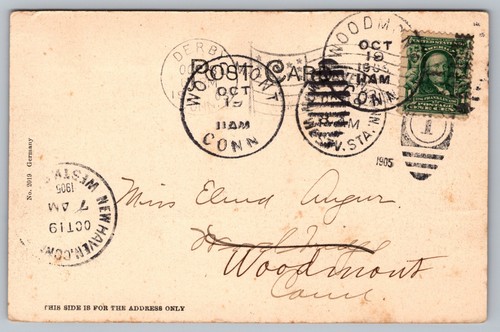 POST CARD
DERBY
WOODMONT
OCT
19
11AM
CONN
WOODMONT
OCT
19
1905
11AM
CONN
V.STA.
1
1905
No. 2919 Germany
NEW HAVEN, CONN.
OCT 19
7 AM
1905
Miss Elma Augur
Woodmont
Conn
THIS SIDE IS FOR THE ADDRESS ONLY